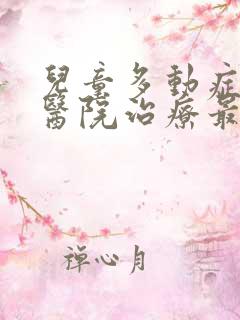 兒童多動症
醫院治療最
禪心月